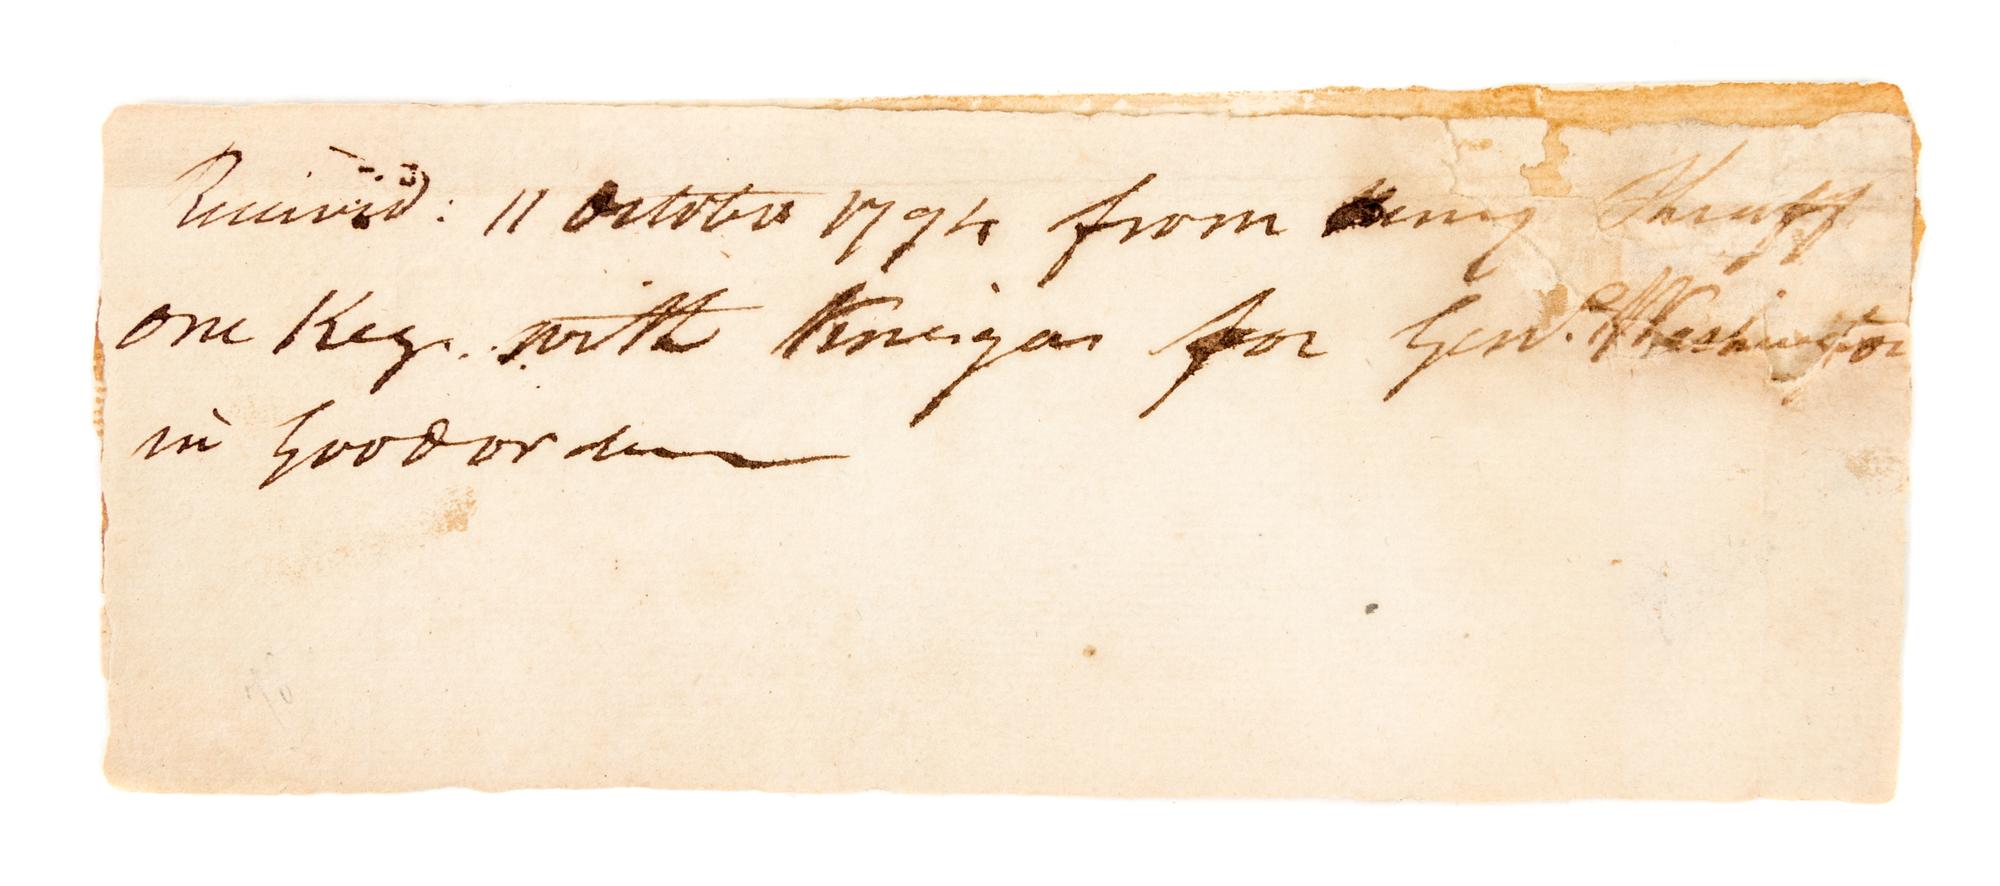 Received: 11 October 1794 from Henry Shruff
one Keg. with Vineigar for Genl. Washington
in Good order